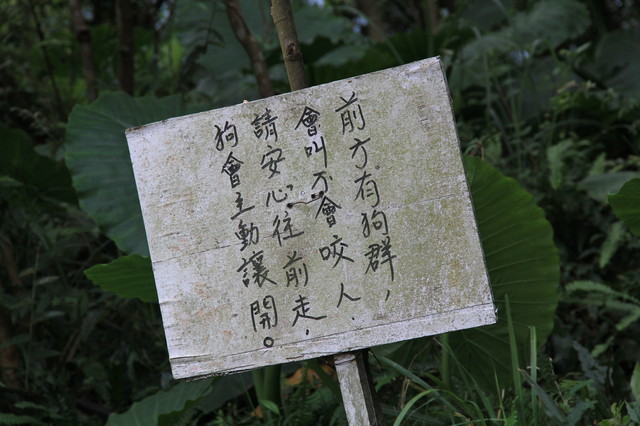 前方有狗群，
會叫不會咬人，
請安心往前走，
狗會主動讓開。